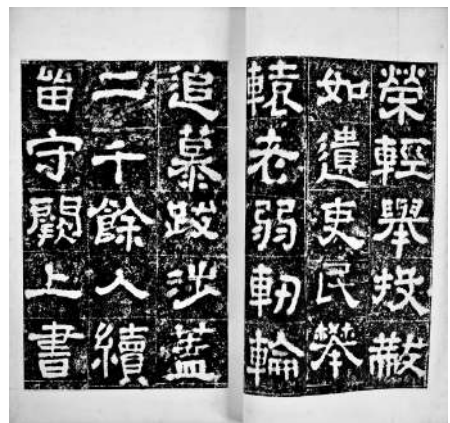 榮輕舉投黻
如遺吏民攀
轅老弱軔輪
追慕跋涉蓋
二千餘人續
留守闕上書